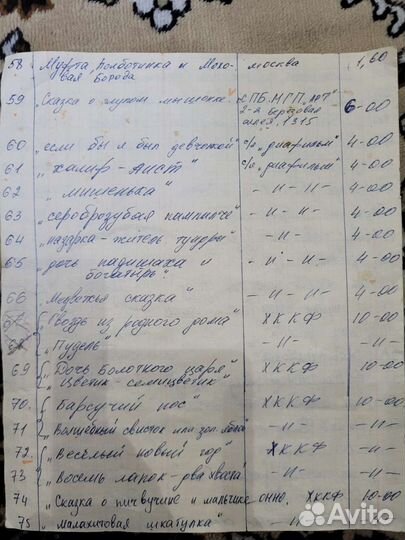 58 Муфта, Полботинка и Мохо- москва 1,60
вая Борода
59 „Сказка о глупом мышонке" СПБ. МГП „АРТ" 6-00
2-я бортовая
1315
60 „если бы я был девчонкой" с/я „диафильм" 4-00
61 „халиф-Аист" с/я „диафильм" 4-00
62 „мишенька" -и-и- 4-00
63 „сереброзубая -и-и- 4-00
64 „назарка-житель тундры" -и- 4-00
65 „дочь падишаха и -и-и- 4-00
богатырь"
66 „Медвежья сказка" -и-и- 4-00
67 „Гвоздь из родного дома" ХККФ 10-00
68 „Пудель" -и- -и-
69 „Дочь Болотного царя" ХККФ 10-00
„Цветик-семицветик"
70. „Барсучий нос" ХККФ 10-00
71 „Волшебный свисток или зол. -и- -и-
72. „Весёлый новый год" ХККФ -и-
73 „Восемь лапок-два хвоста" -и- -и-
74 „Сказка о пичужине и мальчике онно. ХККФ 10-00
75 „малахитовая шкатулка" -и-
Avito